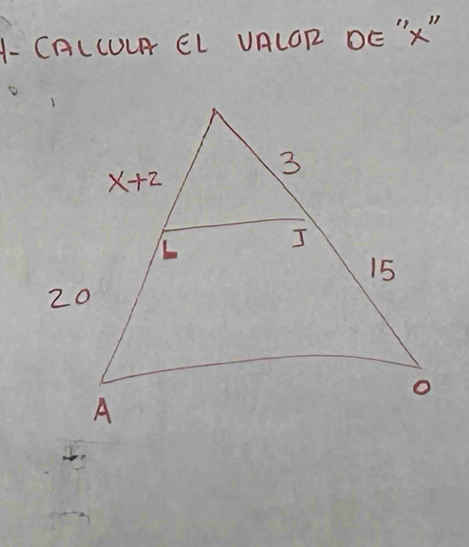 1- CALCULA EL VALOR DE "X"
X+2
3
L
J
20
15
A
O